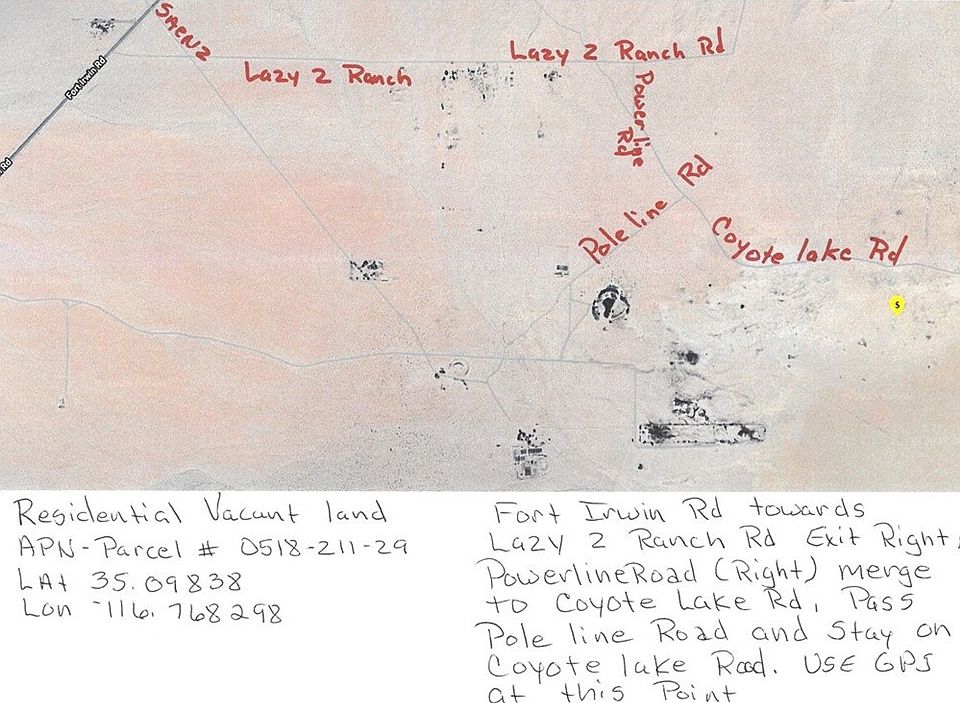 SAENZ
Lazy 2 Ranch Rd
Lazy 2 Ranch
Fort Irwin Rd
Rd
Powerline Rd
Pole line Rd
Coyote lake Rd
S
Residential Vacant land
APN-Parcel # 0518-211-29
LAt 35.09838
Lon -116.768298
Fort Irwin Rd towards
Lazy 2 Ranch Rd Exit Right,
PowerlineRoad (Right) merge
to Coyote Lake Rd, Pass
Pole line Road and Stay on
Coyote lake Road. USE GPS
at this Point